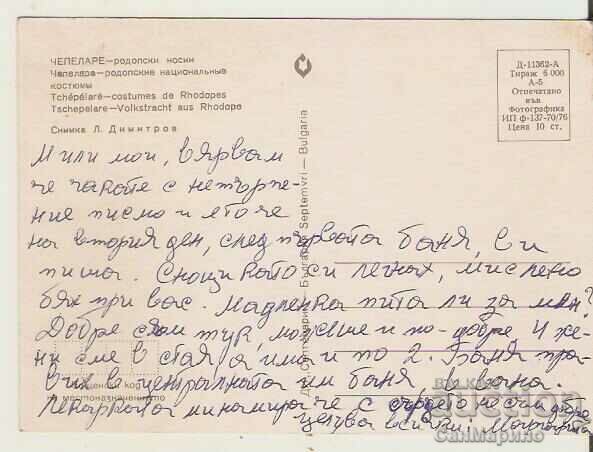 ЧЕПЕЛАРЕ—родопски носии
Чепеларе—родопские национальные
костюмы
Tchépélaré—costumes de Rhodopes
Tschepelare—Volkstracht aus Rhodope
Снимка Л. Димитров
Д-11362-А
Тираж 6 000
А-5
Отпечатано
във
Фотографика
ИП ф-137-70/76
Цена 10 ст.
Български Septemvri — Bulgaria
Мили мои, вярвам
че чакате с нетърпе-
ние писмо и ето че
на втория ден, след първата баня, ви
пиша. Снощи като си легнах, мислено
бях при вас. Мадленка пита ли за мен?
Добре съм тук, можеше и по-добре. 4 же-
ни сме в стая, а има и по 2. Баня пра-
вих в централната им баня, в вана.
Лекарката намира че с сърцето не съм добре
целува всички Маргарита
пощенски код
на местоназначението
auction
СанМарино